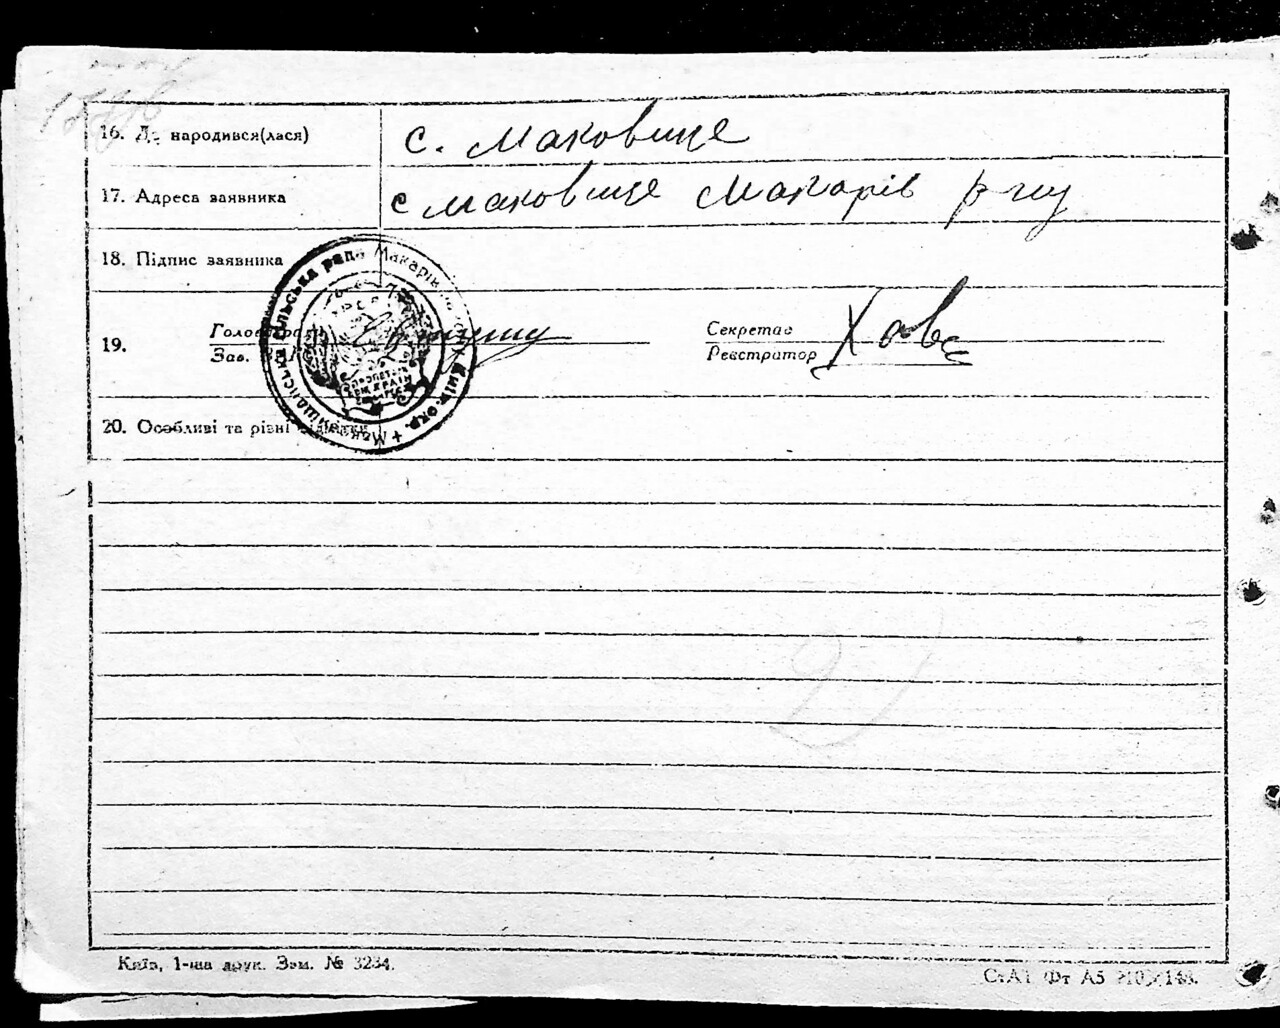 16. Де народився(лася) с. Маковище
17. Адреса заявника с Маковище Макарів р-ну
18. Підпис заявника
19. Голова
Зав.
Секретар
Реєстратор
20. Особливі та різні
сільська рада Макарів окр.
Київ, 1-ша друк. Зам. № 3234.
СтАт Фт А5